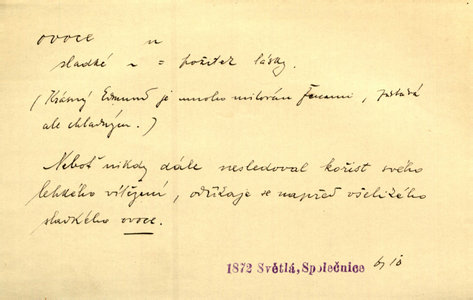 ovoce n
sladké ~ = požitek lásky.
(Krásný Edmund je mnoho milován ženami, zůstává
ale chladným.)
Neboť nikdy dále nesledoval kořist svého
lehkého vítězení, odříkaje se napřed všelikého
sladkého ovoce.
1872 Světlá, Společnice 6, 10